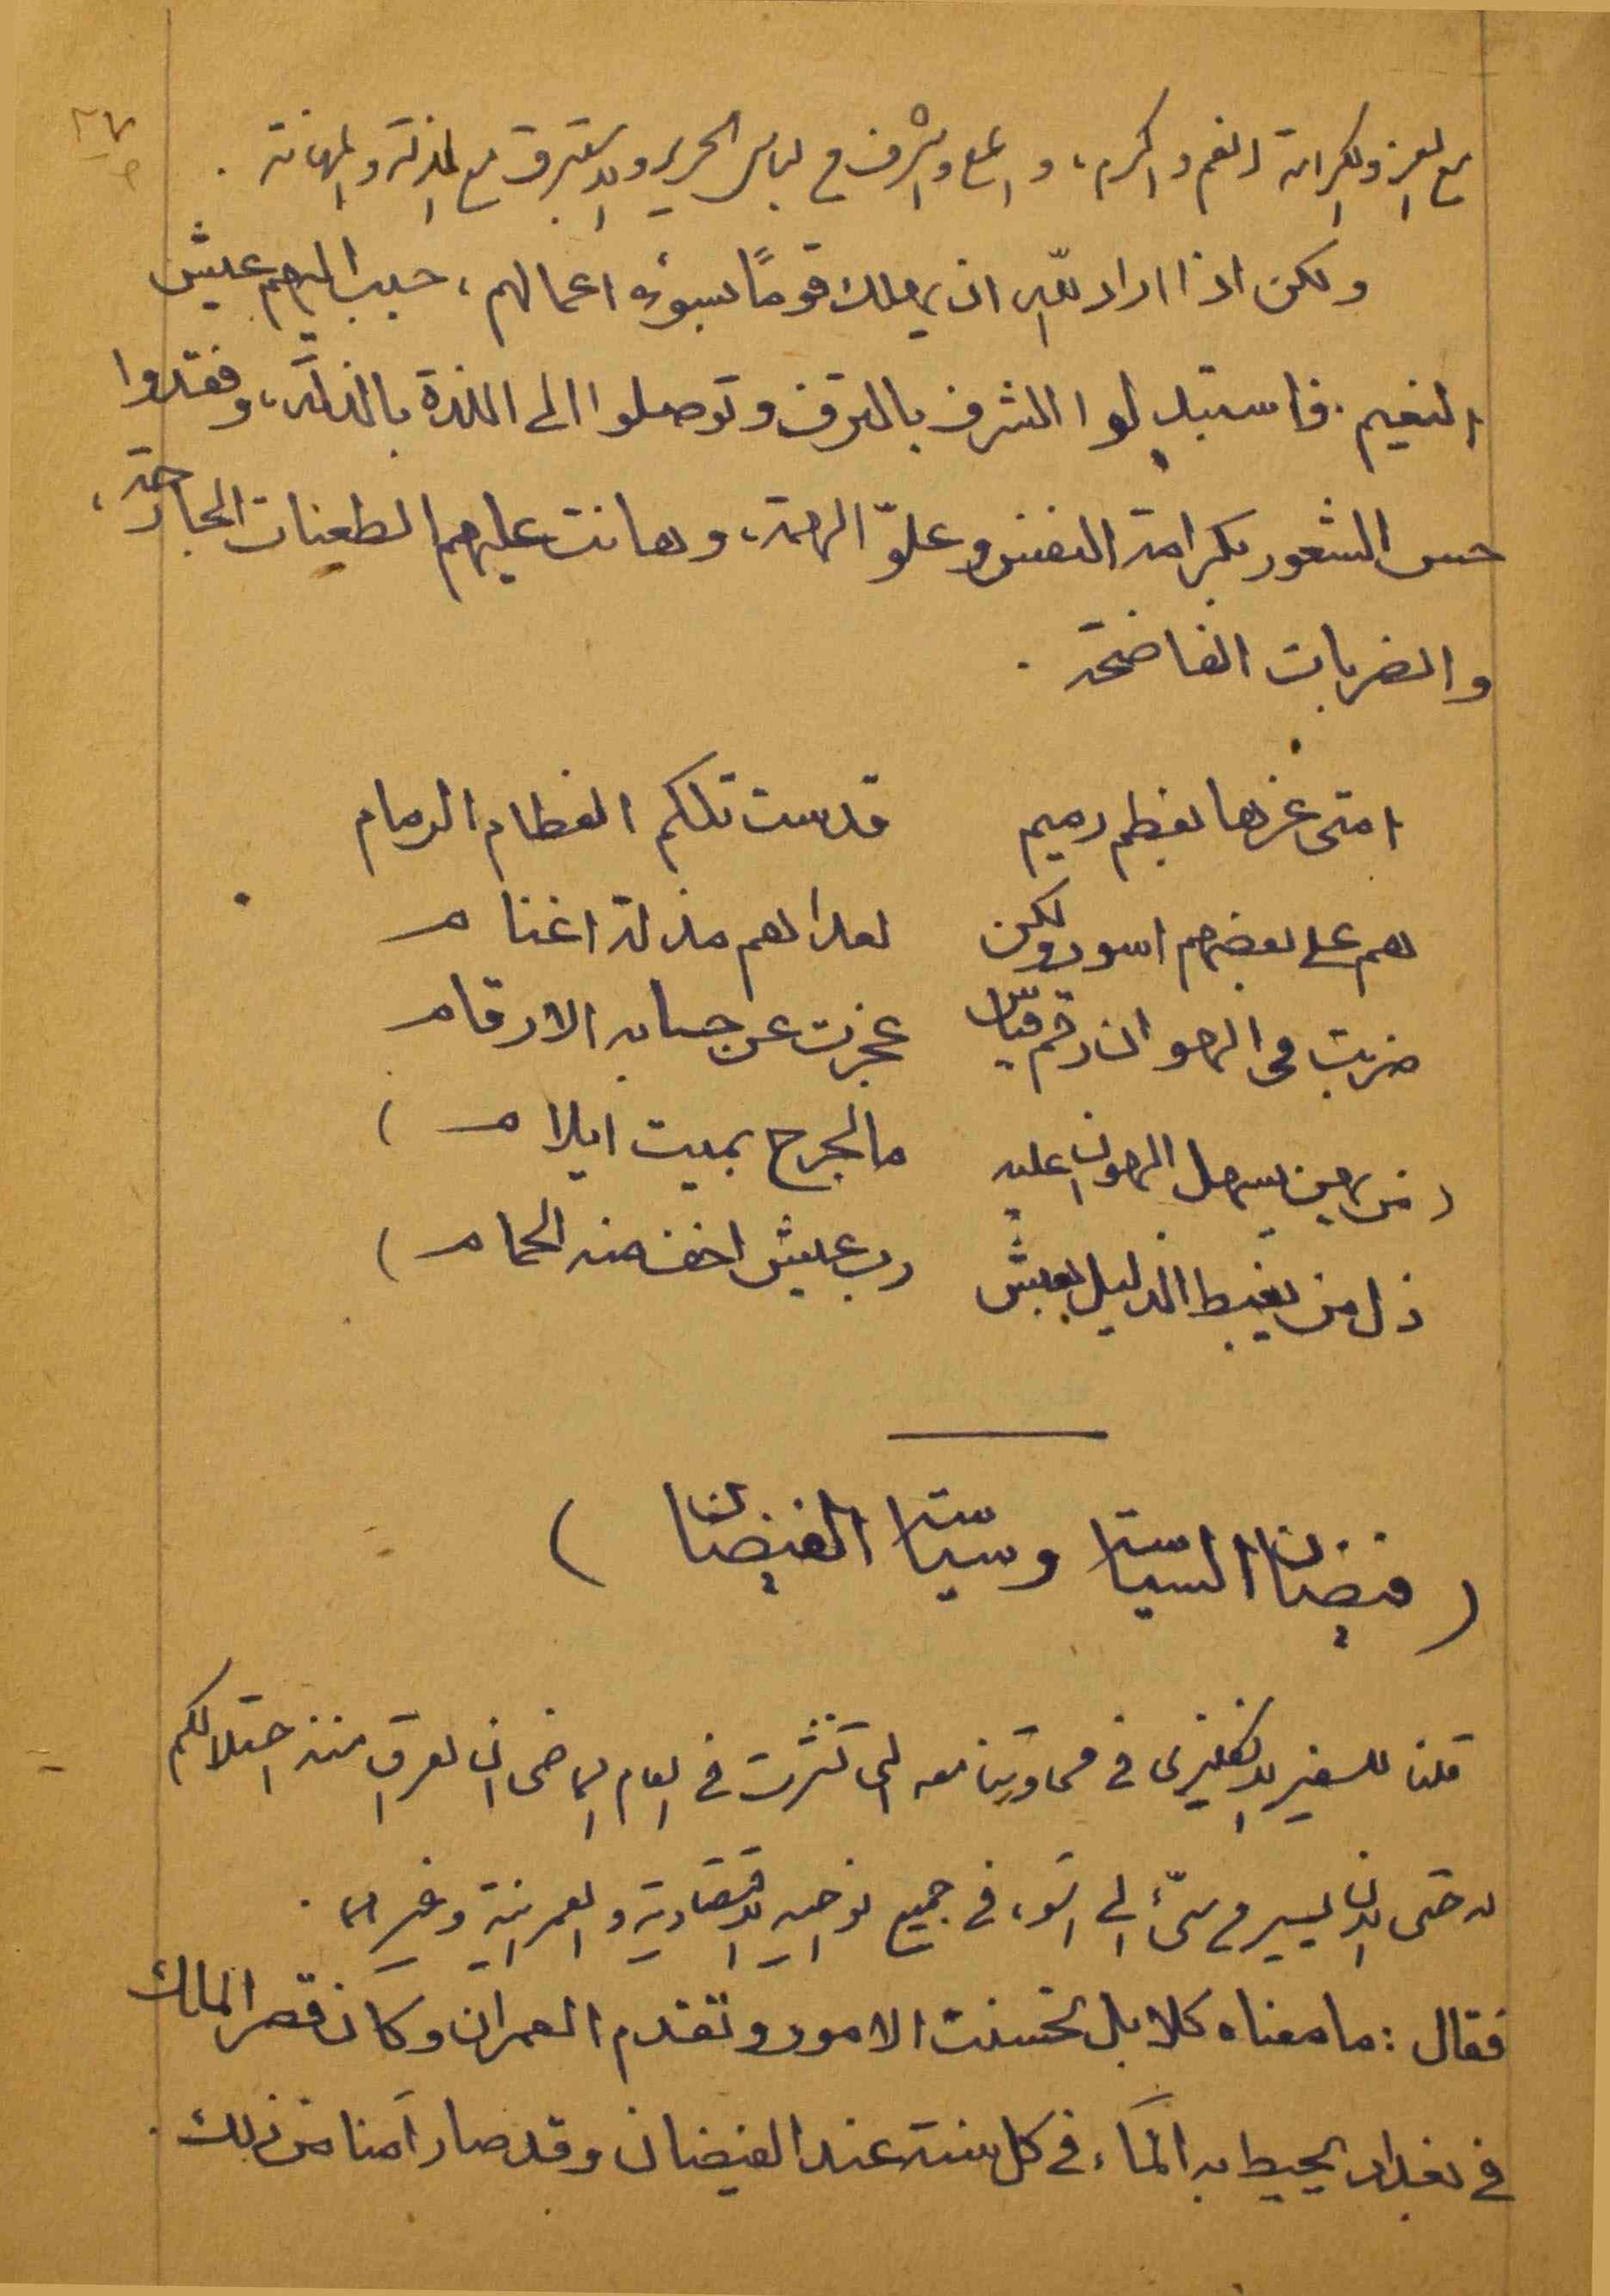 ٢٧
مع العز والكرامة انعم واكرم، وامتع واشرف من لباس الحرير والاستبرق مع المذلة والمهانة .
ولكن اذا اراد الله ان يهلك قومًا لسوء اعمالهم، حبب اليهم عيش
النعيم . فاستبدلوا الشرف بالترف وتوصلوا الى اللذة بالذلة، وفقدوا
حس الشعور بكرامة النفس وعلوّ الهمة، وهانت عليهم الطعنات الجارحة،
والضربات الفاضحة .
امتى عزها بعظم رميم قدست تلكم العظام الرمام
هم على بعضهم اسود ولكن لعداهم مذلة اغنام
ضربت فى الهوان رقم قياس عجزت عن حسابه الارقام
( من يهن يسهل الهوان عليه ما لجرح بميت ايلام )
ذل من يغبط الذليل بعيش رب عيش اخف منه الحمام )
( فيضان السياسة وسياسة الفيضان )
قلنا للسفير الانكليزى في محاورتنا معه التي نشرت في العام الماضى ان العراق منذ احتلالكم
له حتى الان يسير من سيّئ الى اسوء في جميع نواحيه الاقتصادية والعمرانية وغيرها .
فقال : ما معناه كلا بل تحسنت الامور وتقدم العمران وكان قصر الملك
في بغداد يحيط به الماء في كل سنة عند الفيضان وقد صار آمنا من ذلك .